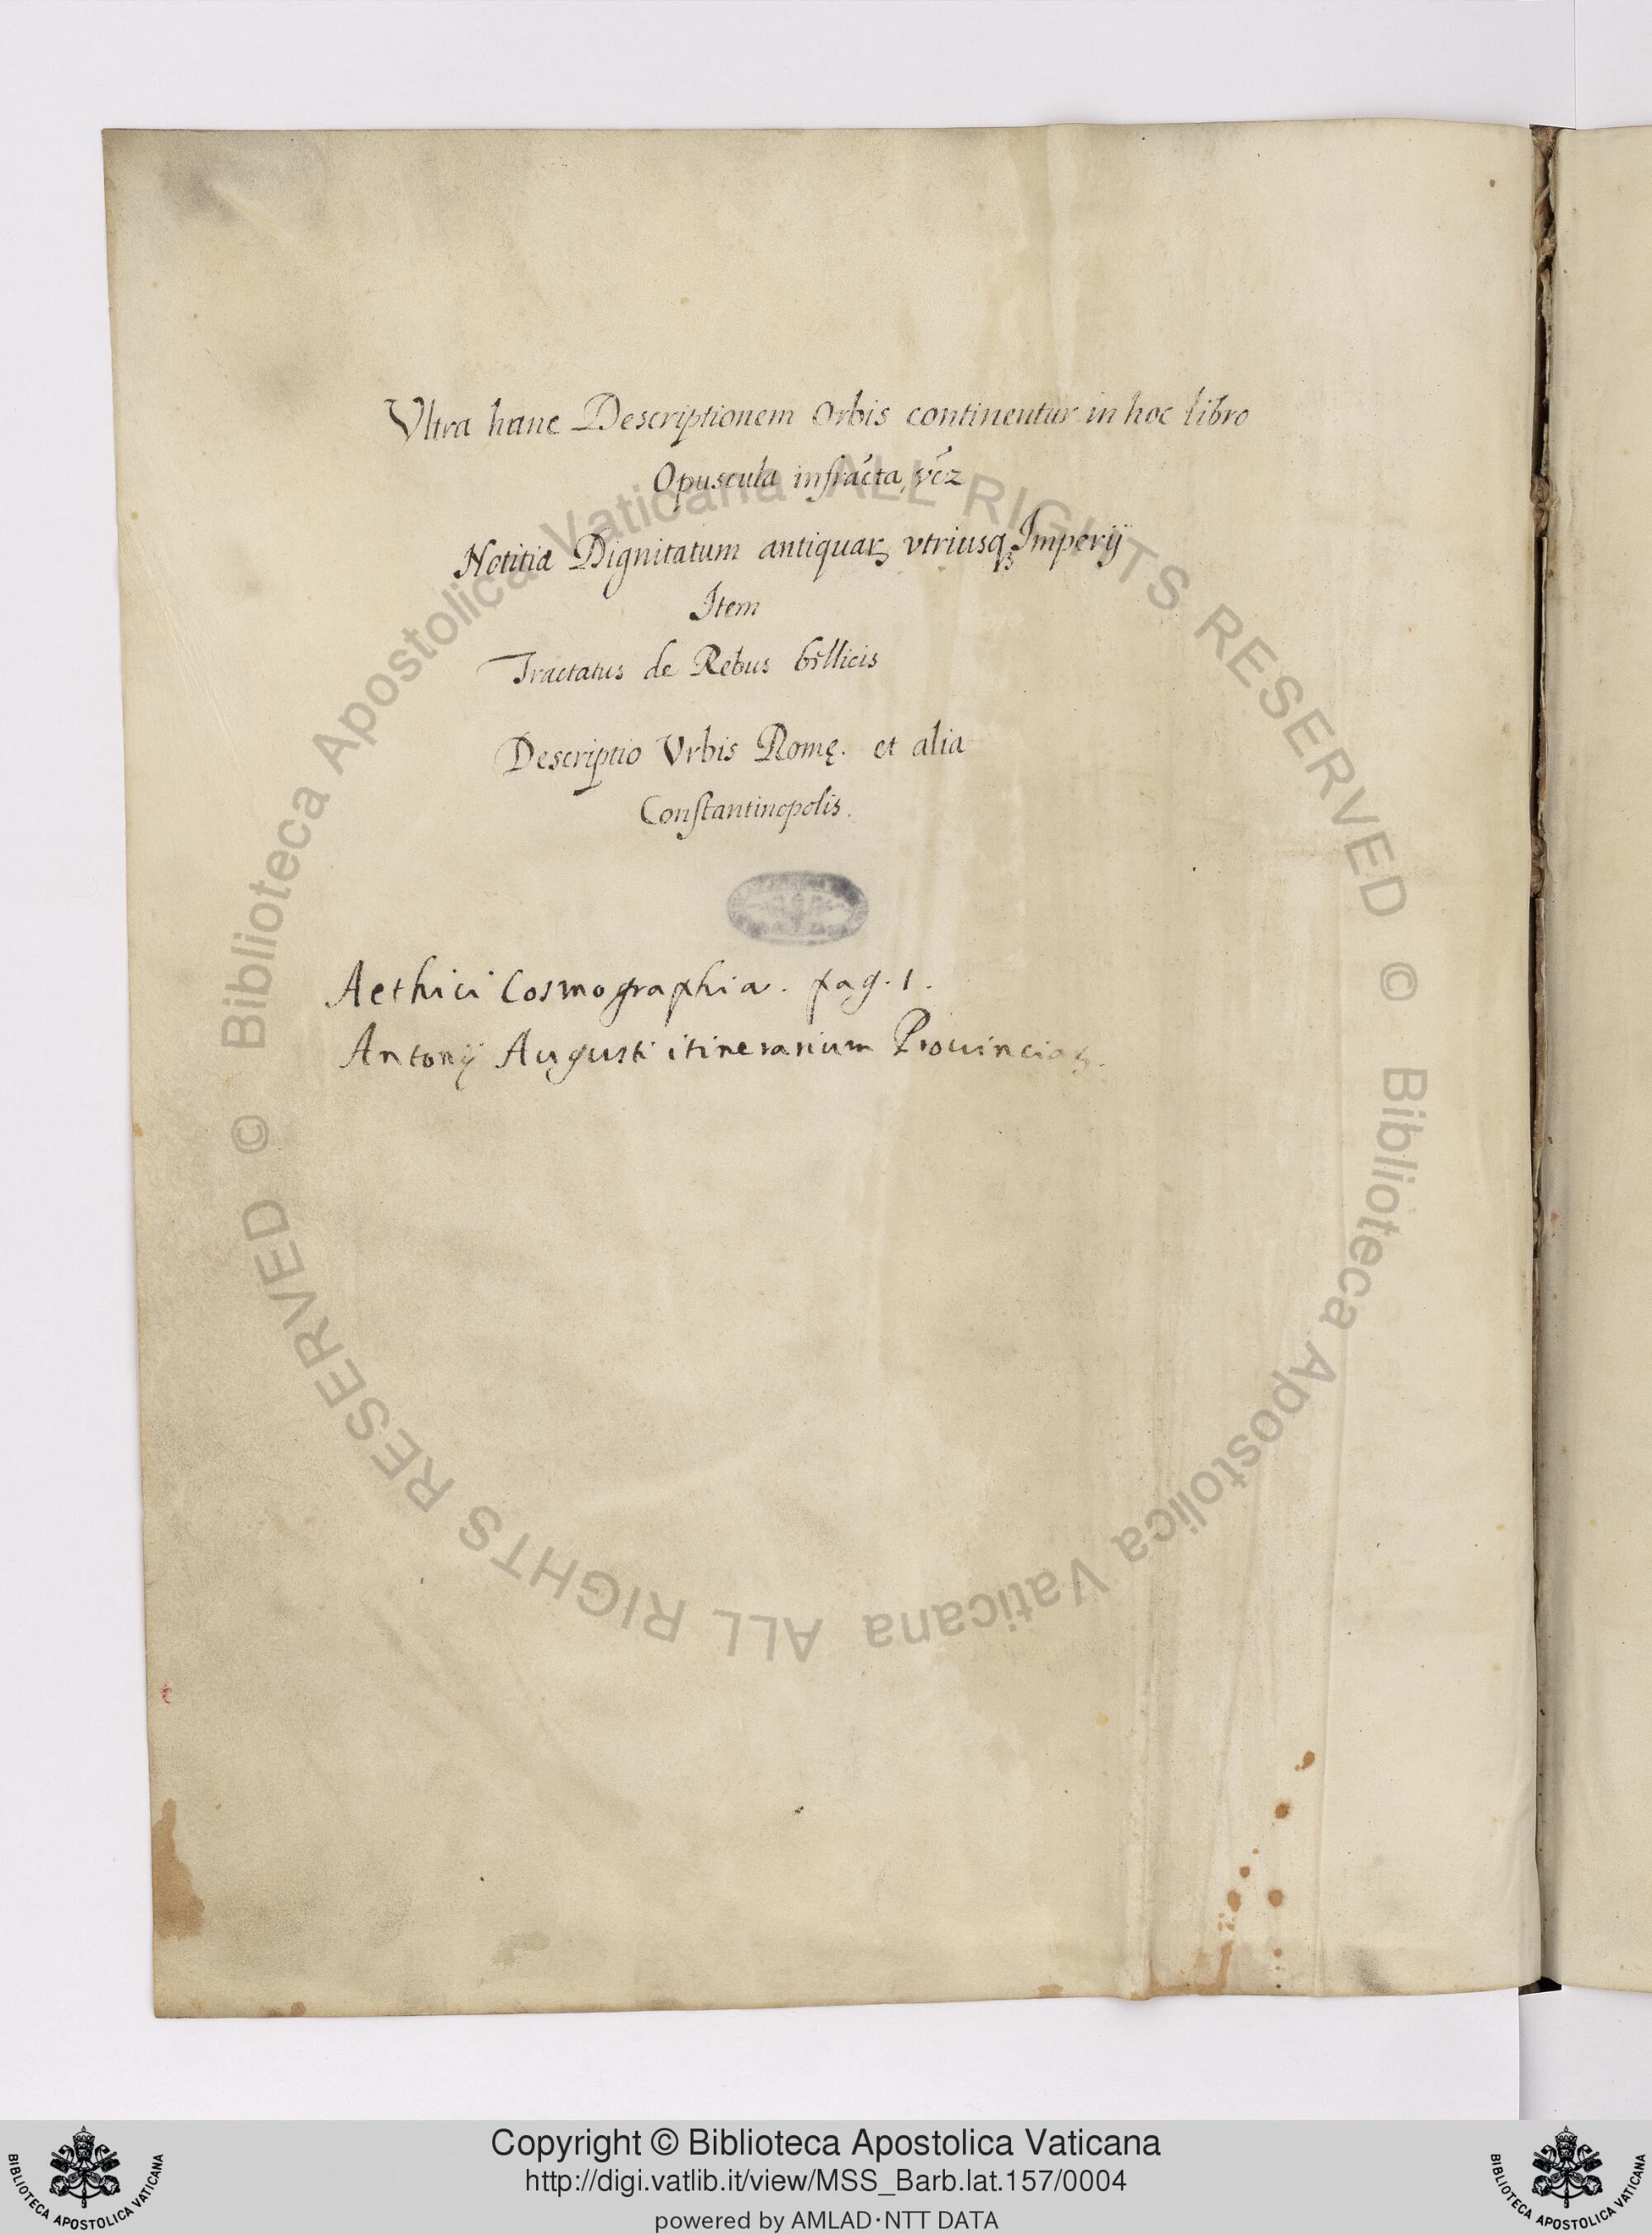 Vltra hanc Descriptionem Orbis continentur in hoc libro
Opuscula infrãcta, vc̃z
Notitia Dignitatum antiquarꝫ vtriusqꝫ Imperij
Item
Tractatus de Rebus bellicis
Descriptio Vrbis Romę. et alia
Constantinopolis.
Aethici Cosmographia. pag. 1.
Antonij Augusti itinerarium Prouinciaꝝ.
© Biblioteca Apostolica Vaticana ALL RIGHTS RESERVED
© Biblioteca Apostolica Vaticana ALL RIGHTS RESERVED
Copyright © Biblioteca Apostolica Vaticana
http://digi.vatlib.it/view/MSS_Barb.lat.157/0004
powered by AMLAD·NTT DATA
BIBLIOTECA APOSTOLICA VATICANA
BIBLIOTECA APOSTOLICA VATICANA